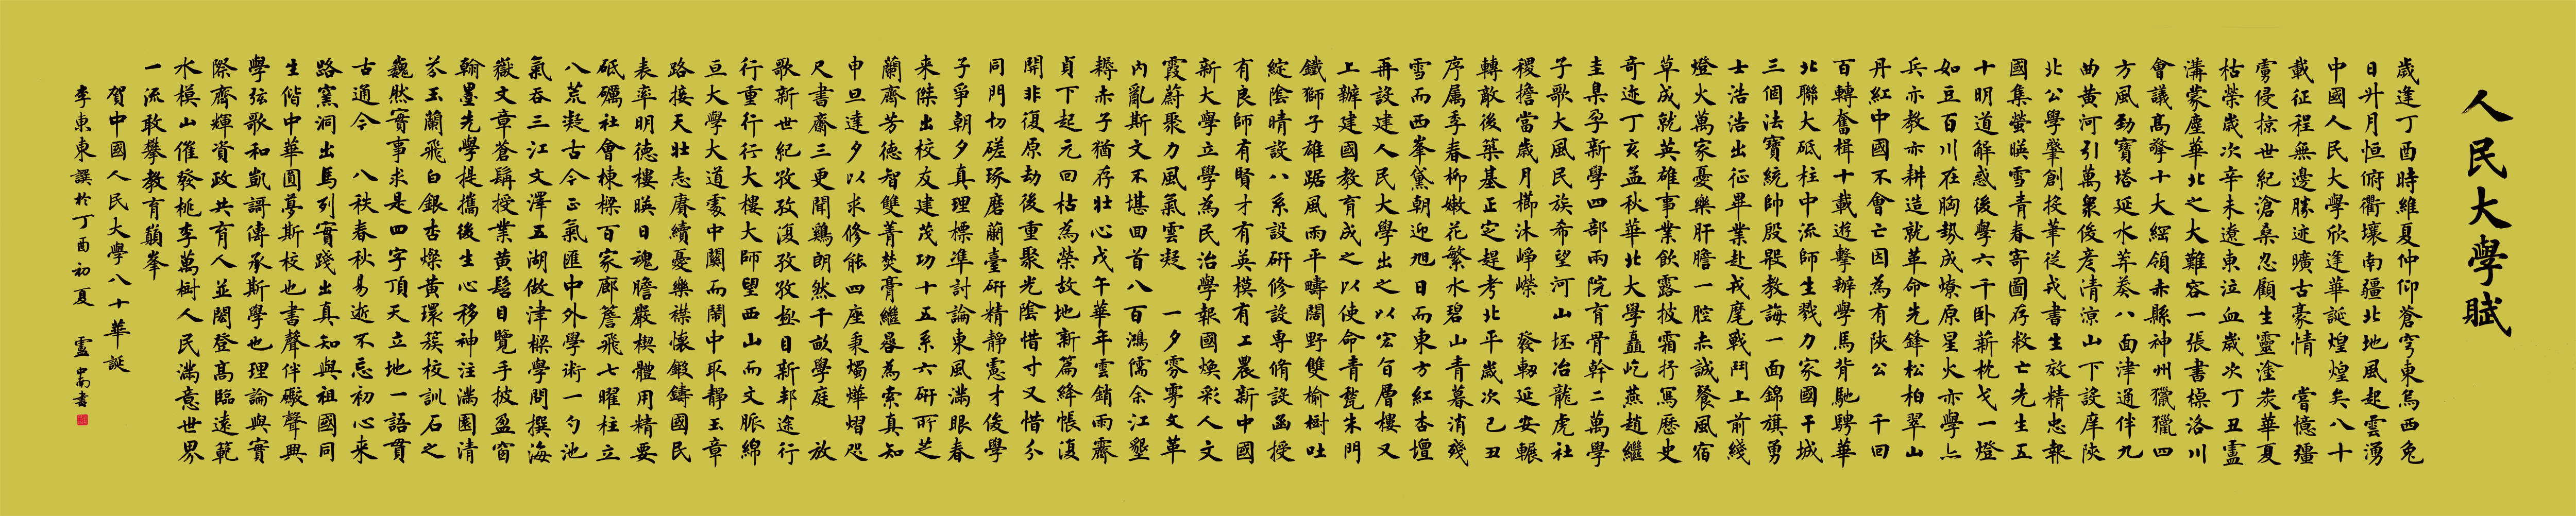 人民大學賦
歲逢丁酉時維夏仲仰蒼穹東烏西兔
日升月恒俯衢壤南疆北地風起雲湧
中國人民大學欣逢華誕煌煌矣八十
載征程無邊勝迹曠古豪情　嘗憶彊
虜侵掠世紀滄桑忍顧生靈塗炭華夏
枯榮歲次辛未遼東泣血歲次丁丑盧
溝蒙塵華北之大難容一張書桌洛川
會議高擎十大綱領赤縣神州獵獵四
方風勁寶塔延水莽莽八面津通伴九
曲黄河引萬衆俊彦清涼山下設庠陝
北公學肇創投筆從戎書生效精忠報
國集螢暎雪青春寄圖存救亡先生五
十明道解惑後學六千卧薪枕戈一燈
如豆百川在胸勢成燎原星火亦學亦
兵亦教亦耕造就革命先鋒松柏翠山
丹紅中國不會亡因為有陝公　千回
百轉奮楫十載遊擊辦學馬背馳騁華
北聯大砥柱中流師生戮力家國干城
三個法寶統帥殷殷教誨一面錦旗勇
士浩浩出征畢業赴戎麾戰鬥上前綫
燈火萬家憂樂肝膽一腔赤誠餐風宿
草成就英雄事業飲露披霜抒寫歷史
奇迹丁亥孟秋華北大學矗屹燕趙繼
圭臬孕新學四部兩院育骨幹二萬學
子歌大風民族希望河山坯冶龍虎社
稷擔當歲月櫛沐崢嶸　發軔延安輾
轉敵後築基正定趕考北平歲次己丑
序属季春柳嫩花繁水碧山青暮消殘
雪而西峯黛朝迎旭日而東方紅杏壇
再設建人民大學出之以宏百層樓又
上辦建國教育成之以使命青甍朱門
鐵獅子雄踞風雨平疇闊野雙榆樹吐
綻陰晴設八系設研修設專脩設函授
有良師有賢才有英模有工農新中國
新大學立學為民治學報國煥彩人文
霞蔚聚力風氣雲凝　一夕雰雺文革
内亂斯文不堪回首八百鴻儒余江墾
耨赤子猶存壯心戊午華年雲銷雨霽
貞下起元回枯為榮故地新篇絳帳復
開非復原劫後重聚光陰惜寸又惜分
同門切磋琢磨蘭臺研精靜憲才俊學
子爭朝夕真理標凖討論東風滿眼春
来傑出校友建茂功十五系六研所芝
蘭齊芳德智雙菁焚膏繼晷為索真知
申旦達夕以求修能四座秉燭燁熠咫
尺書齋三更聞鷄朗然千畝學庭　放
歌新世紀孜孜復孜孜極目新邦途行
行重行行大樓大師望西山而文脈綿
亘大學大道處中關而鬧中取靜玉章
路接天壯志賡續憂樂襟懷鍛鑄國民
表率明德樓暎日魂膽嚴楔體用精要
砥礪社會棟樑百家廊簷飛七曜柱立
八荒凝古今正氣匯中外學術一勺池
氣吞三江文澤五湖做津樑學問撰海
嶽文章蒼髯授業黄髫目覽手披盈窗
翰墨先學提攜後生心移神注滿園清
芬玉蘭飛白銀杏燦黄環簇校訓石之
巍然實事求是四字頂天立地一語貫
古通今　八秩春秋易逝不忘初心来
路窯洞出馬列實踐出真知與祖國同
生偕中華圓夢斯校也書聲伴礮聲興
學弦歌和凱謌傳承斯學也理論與實
際齊輝資政共育人並閎登高臨遠範
水模山催發桃李萬樹人民滿意世界
一流敢攀教育巔峯
賀中國人民大學八十華誕
李東東譔於丁酉初夏　盧中南書